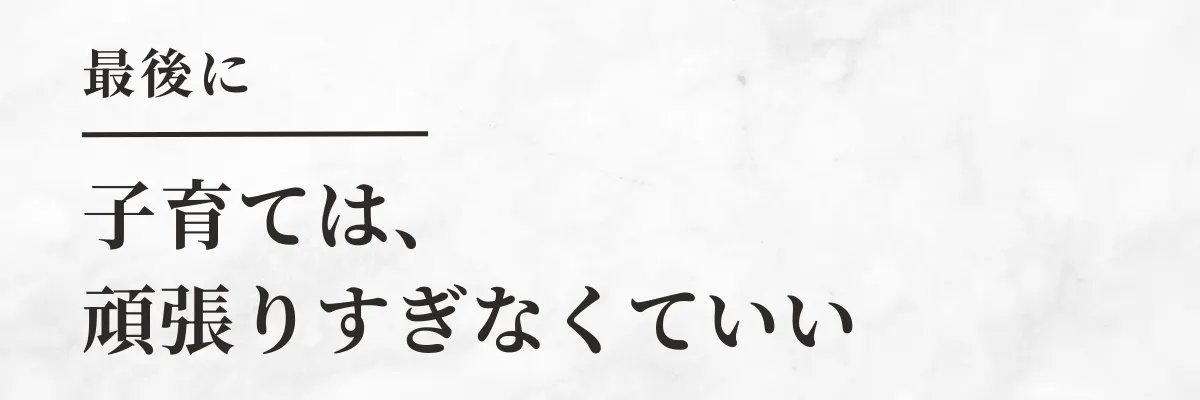 最後に
子育ては、
頑張りすぎなくていい